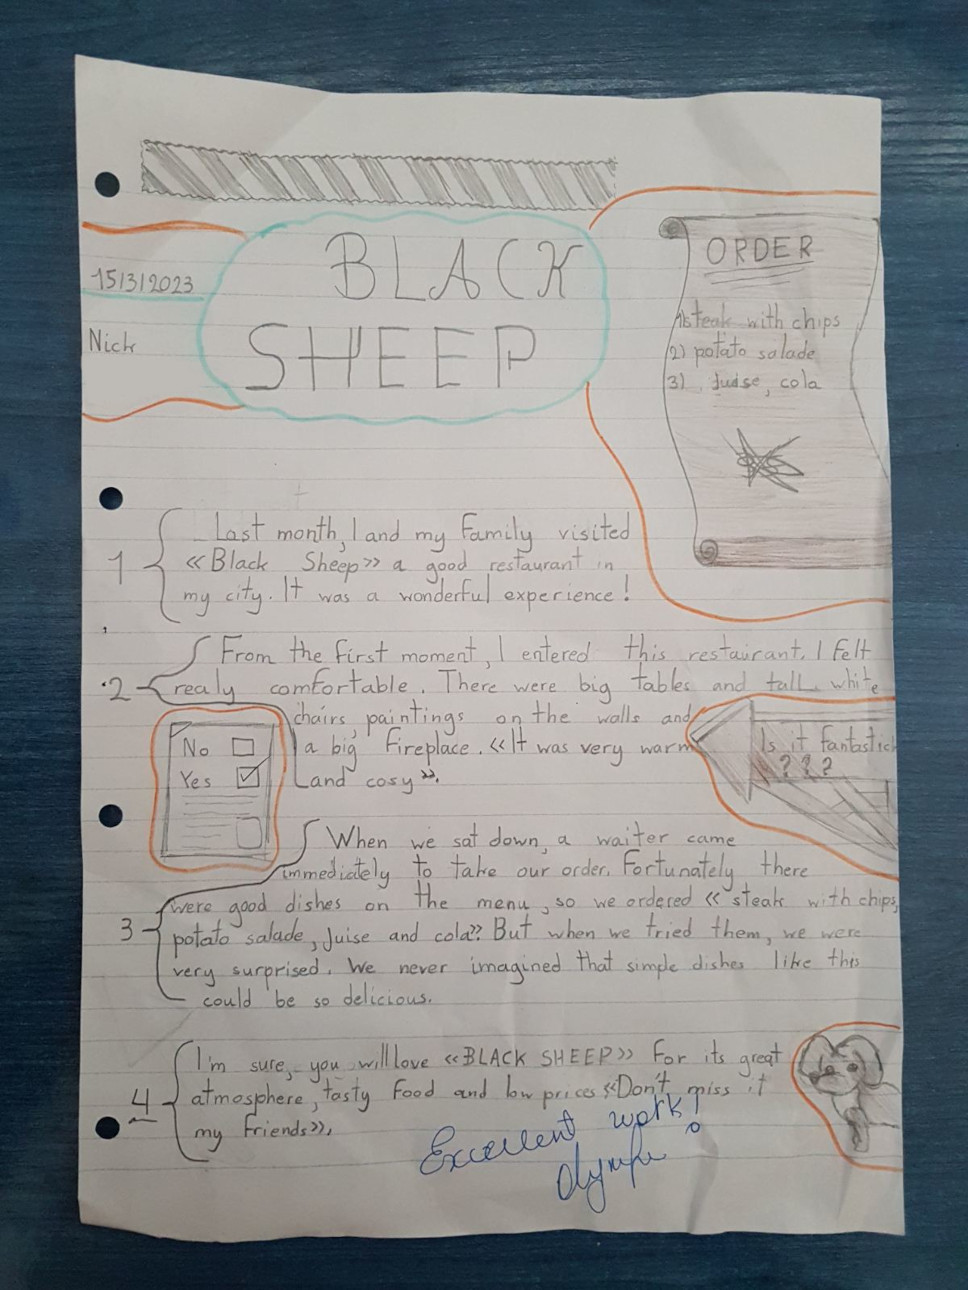 BLACK
SHEEP
15/3/2023
Nick
ORDER
1) steak with chips
2) potato salade
3) Juise, cola
1
Last month, I and my Family visited
«Black Sheep» a good restaurant in
my city. It was a wonderful experience!
2
From the first moment, I entered this restaurant, I felt
realy comfortable. There were big tables and tall white
chairs, paintings on the walls and
a big Fireplace. «It was very warm
and cosy».
No
Yes
Is it fantastic
? ? ?
3
When we sat down, a waiter came
immediately to take our order. Fortunately there
were good dishes on the menu, so we ordered «steak with chips,
potato salade, Juise and cola» But when we tried them, we were
very surprised. We never imagined that simple dishes like this
could be so delicious.
4
I'm sure, you will love «BLACK SHEEP» For its great
atmosphere, tasty Food and low prices «Don't miss it
my Friends».
Excellent work!